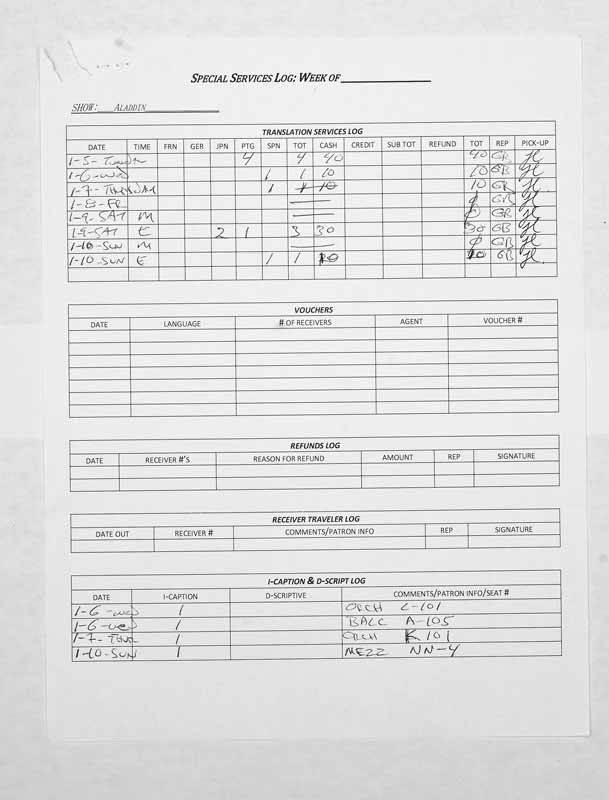 SPECIAL SERVICES LOG: WEEK OF
SHOW: ALADDIN
TRANSLATION SERVICES LOG
DATE TIME FRN GER JPN PTG SPN TOT CASH CREDIT SUB TOT REFUND TOT REP PICK-UP
1-5- 4 4 40 40 GB
1-6-wed 1 1 10 10 GB
1-7-THUR 1 1 10 10 GB
1-8-FR GB
1-9-SAT M GB
1-9-SAT E 2 1 3 30 30 GB
1-10-SUN M GB
1-10-SUN E 1 1 10 10 GB
VOUCHERS
DATE LANGUAGE # OF RECEIVERS AGENT VOUCHER #
REFUNDS LOG
DATE RECEIVER #'S REASON FOR REFUND AMOUNT REP SIGNATURE
RECEIVER TRAVELER LOG
DATE OUT RECEIVER # COMMENTS/PATRON INFO REP SIGNATURE
I-CAPTION & D-SCRIPT LOG
DATE I-CAPTION D-SCRIPTIVE COMMENTS/PATRON INFO/SEAT #
1-6-wed 1 ORCH L-101
1-6-wed 1 BALC A-105
1-7-THUR 1 ORCH K101
1-10-SUN 1 MEZZ NN-4